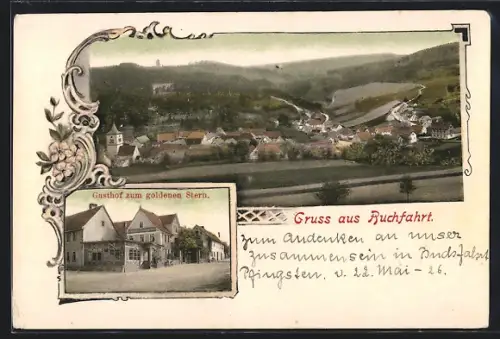 Gasthof zum goldenen Stern.
Gruss aus Buchfahrt.
Zum Andenken an unser
zusammensein in Buchfahrt
Pfingsten. v. 22. Mai - 26.